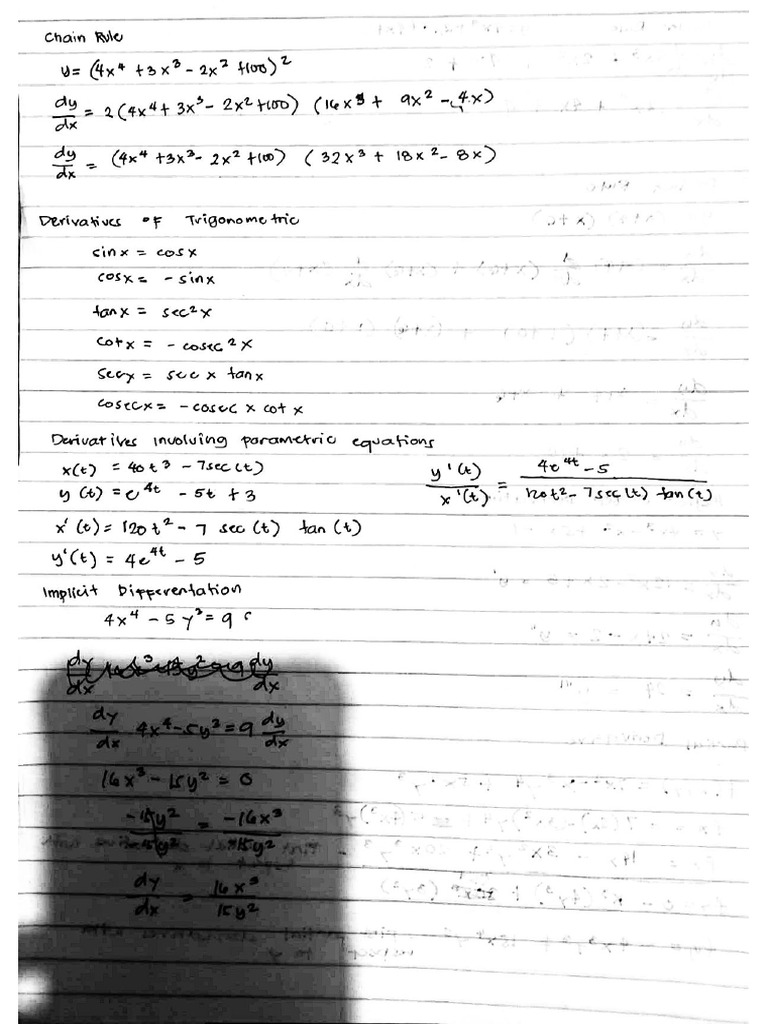 Chain Rule
y = (4x⁴ + 3x³ - 2x² + 100)²
dy/dx = 2(4x⁴ + 3x³ - 2x² + 100) (16x³ + 9x² - 4x)
dy/dx = (4x⁴ + 3x³ - 2x² + 100) (32x³ + 18x² - 8x)
Derivatives of Trigonometric
sin x = cos x
cos x = - sin x
tan x = sec²x
cot x = - cosec²x
sec x = sec x tan x
cosec x = - cosec x cot x
Derivatives involving parametric equations
x(t) = 40t³ - 7sec(t)
y(t) = e⁴ᵗ - 5t + 3
x'(t) = 120t² - 7 sec(t) tan(t)
y'(t) = 4e⁴ᵗ - 5
y'(t)/x'(t) = 4e⁴ᵗ - 5 / 120t² - 7sec(t) tan(t)
Implicit Differentation
4x⁴ - 5y³ = 9
dy/dx 4x⁴ - 5y³ = 9 dy/dx
16x³ - 15y² = 0
-15y²/-15y² = -16x³/-15y²
dy/dx = 16x³/15y²